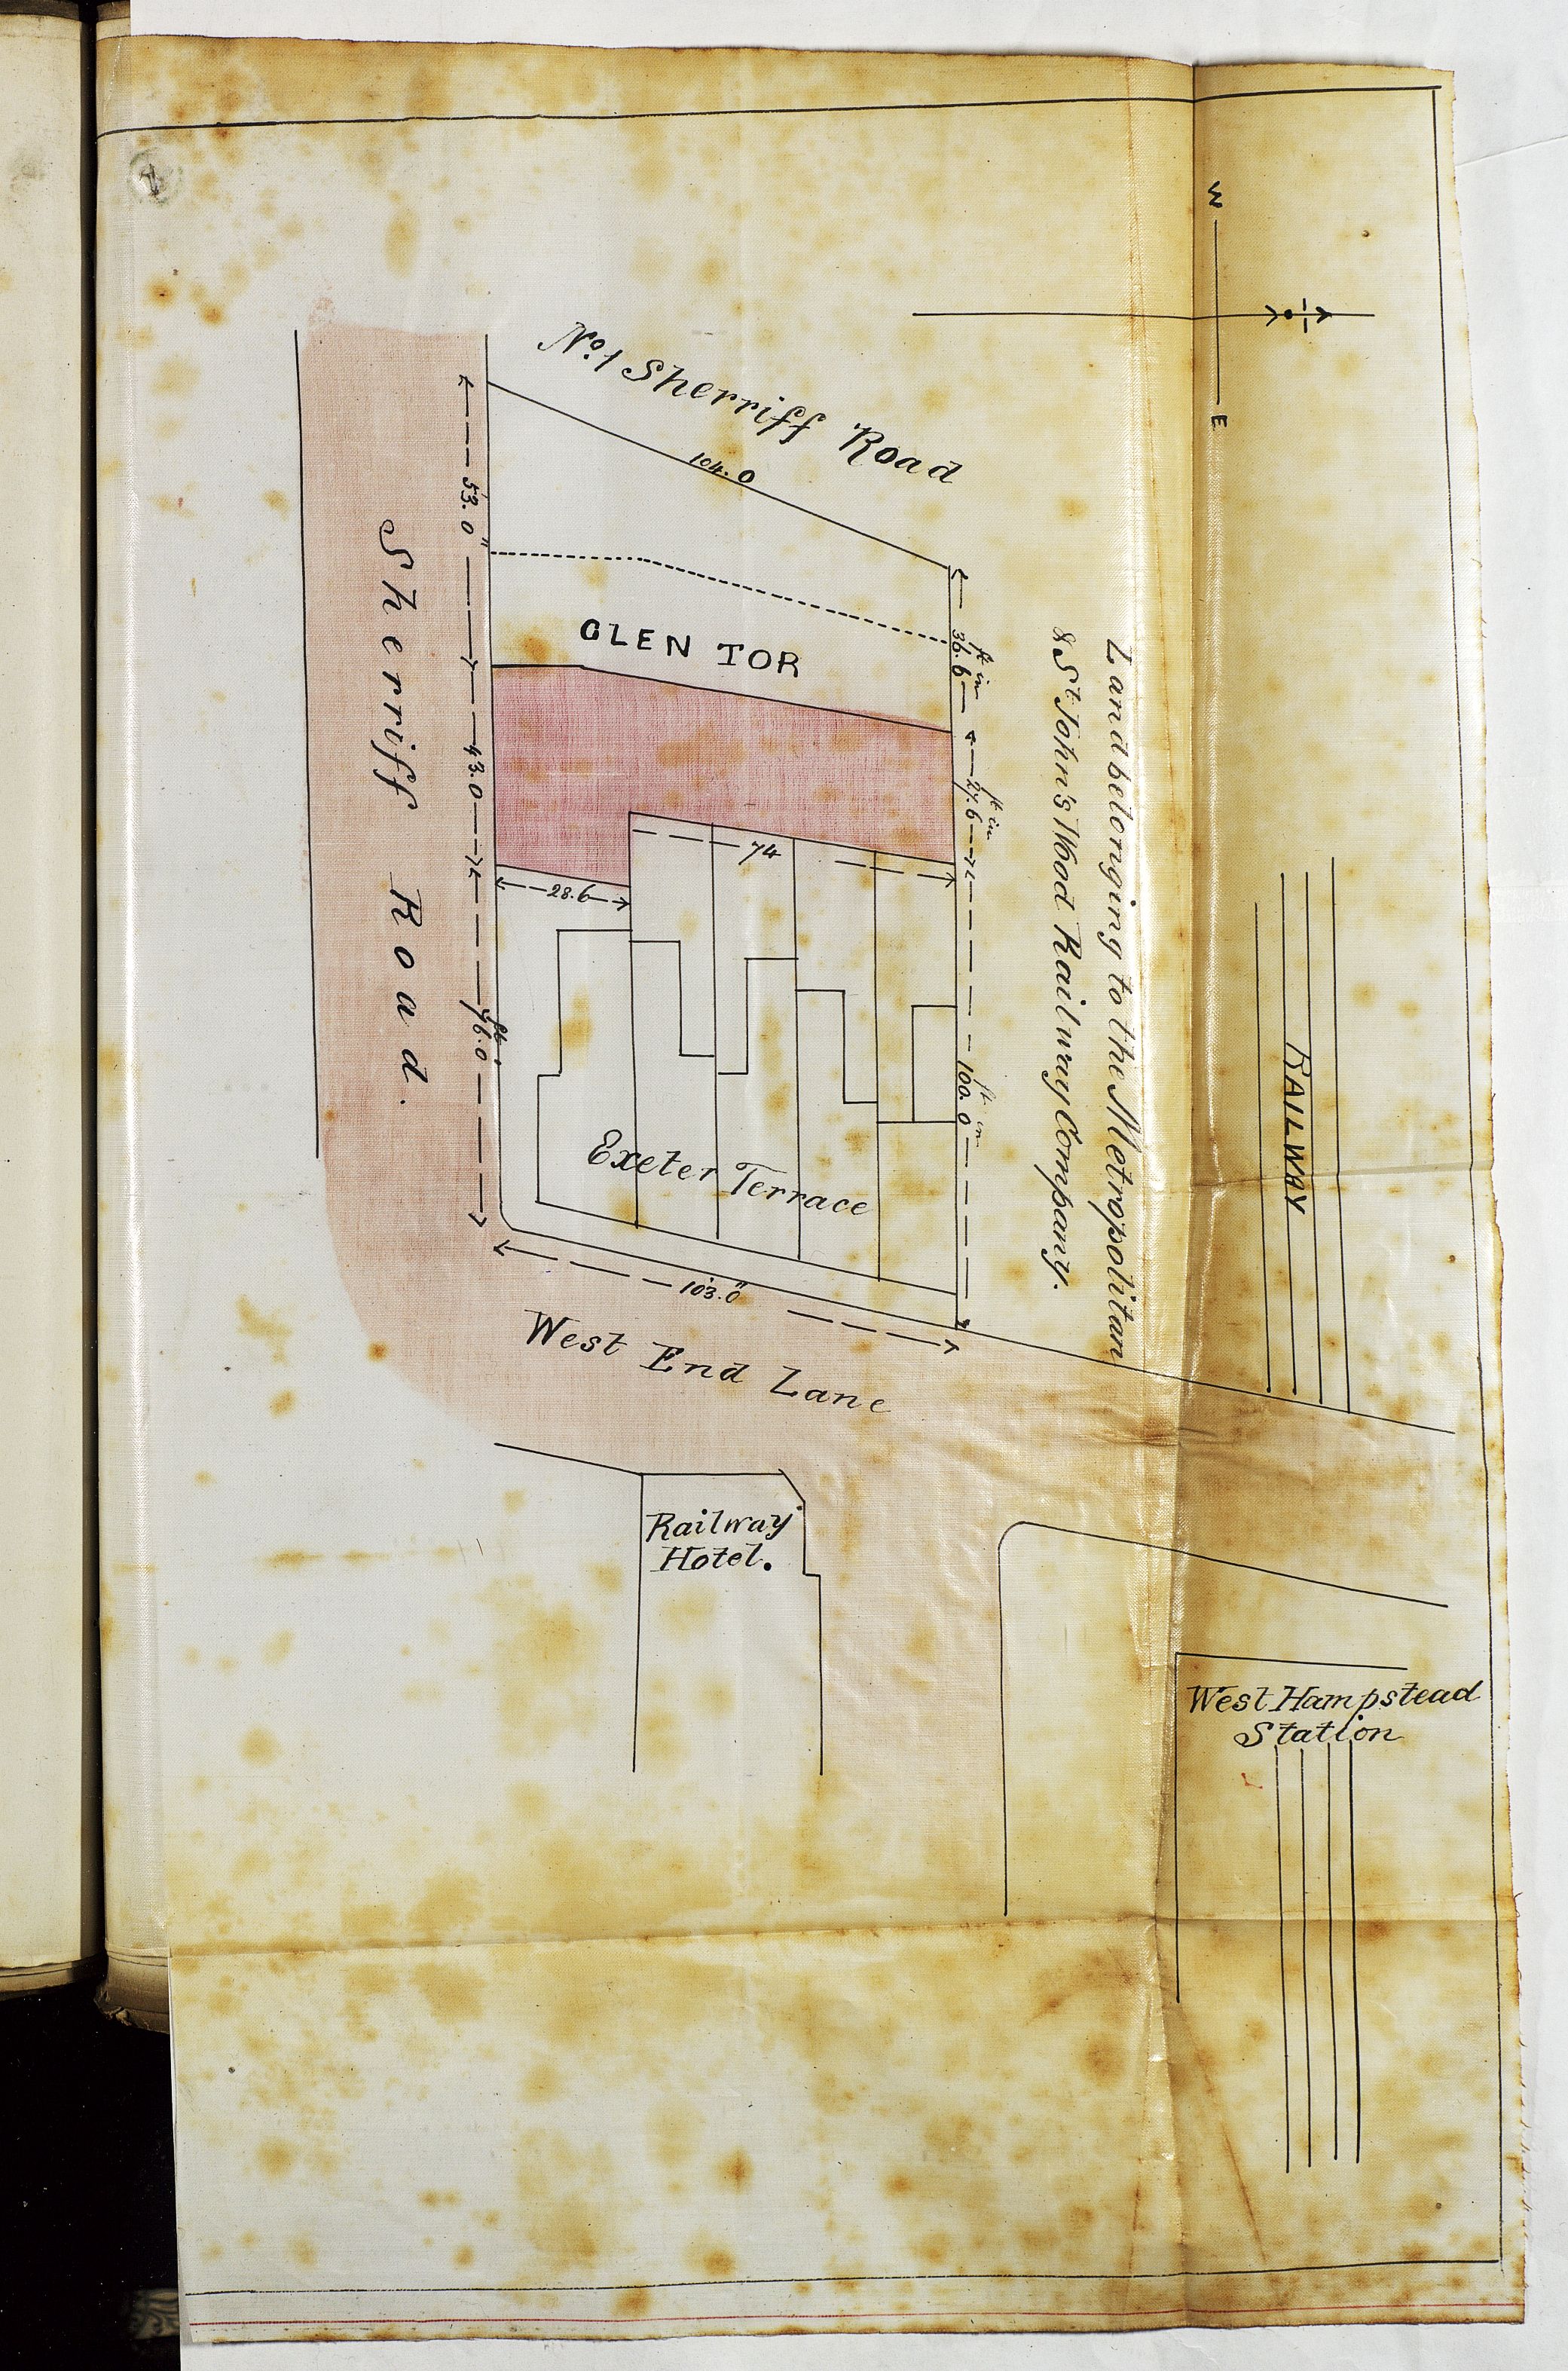 W
E
No. 1 Sherriff Road
104.0
53.0"
GLEN TOR
ft in
36.6
Sherriff Road.
43.0
ft in
27.6
74
28.6
Land belonging to the Metropolitan
& St. John's Wood Railway Company.
RAILWAY
ft.
76.0
ft in
100.0
Exeter Terrace
103.0"
West End Lane
Railway
Hotel.
West Hampstead
Station